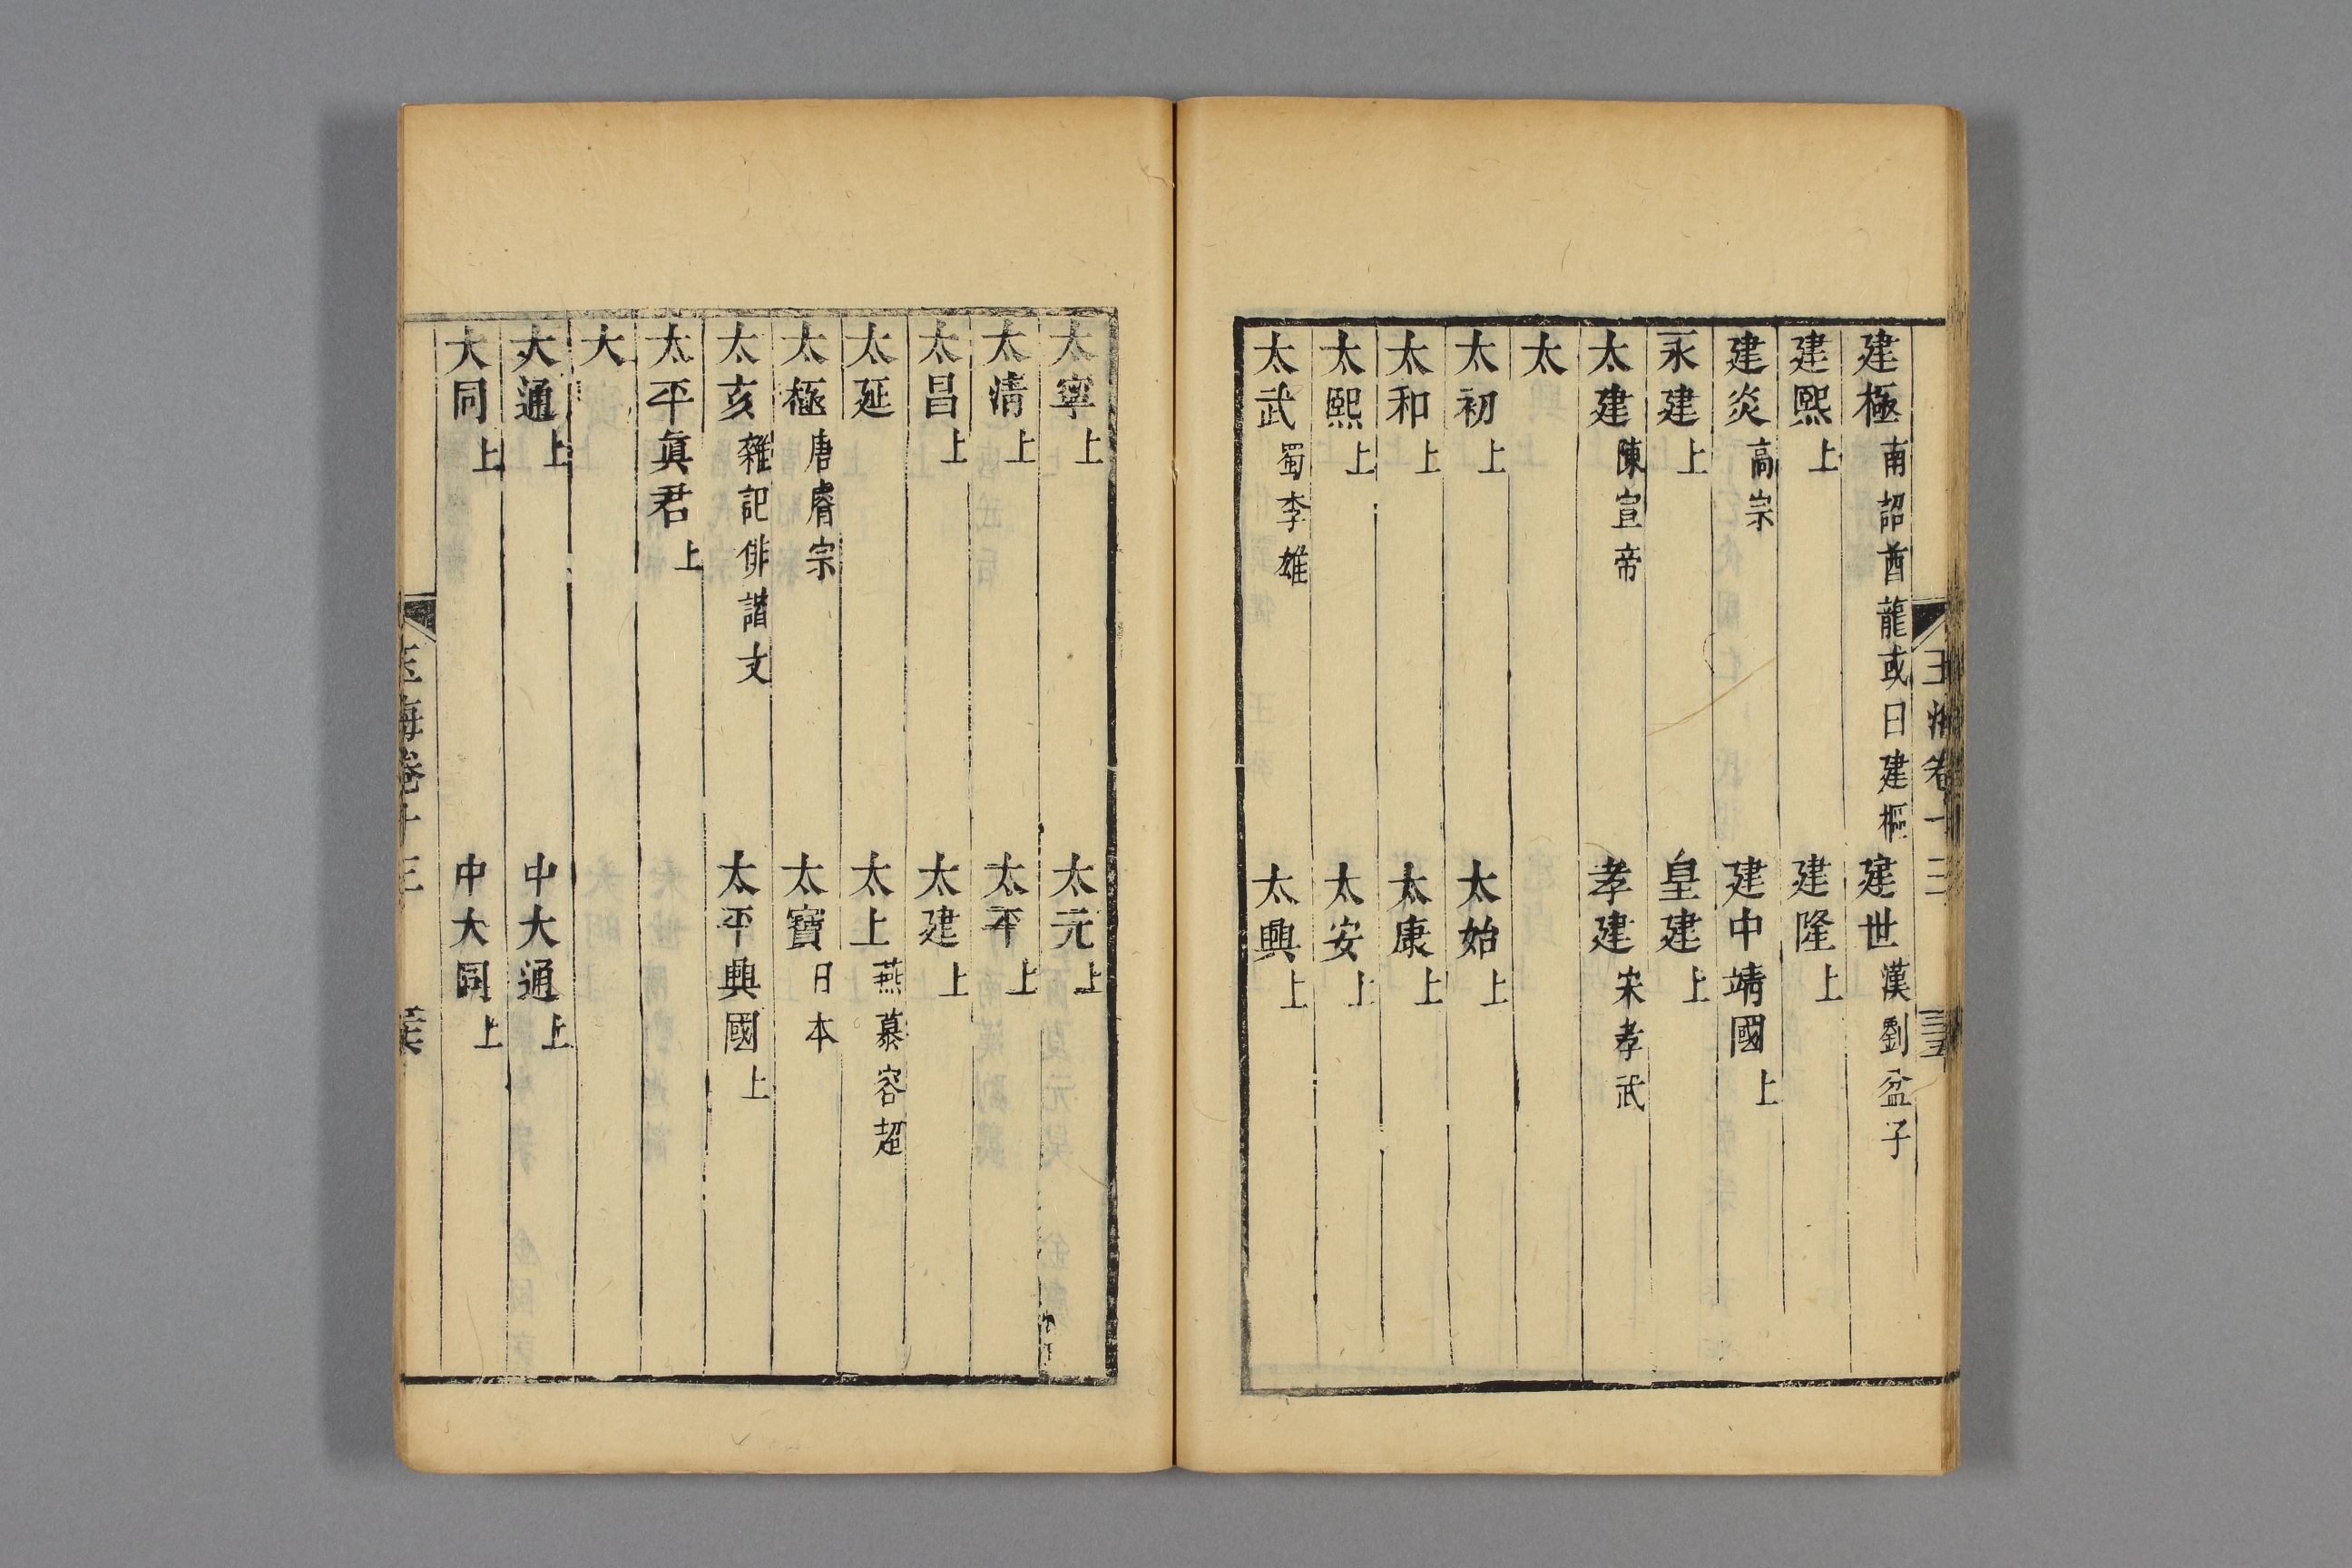 玉海卷十三
建極南詔酋龍或曰建樞 建世漢劉盆子
建熙上 建隆上
建炎高宗 建中靖國上
永建上 皇建上
太建陳宣帝 孝建宋孝武
太
太初上 太始上
太和上 太康上
太熙上 太安上
太武蜀李雄 太興上
太寧上 太元上
太清上 太平上
太昌上 太建上
太延 太上燕慕容超
太極唐睿宗 太寶日本
太亥雜記俳諧文 太平興國上
太平眞君上
大
大通上 中大通上
大同上 中大同上
玉海卷十三